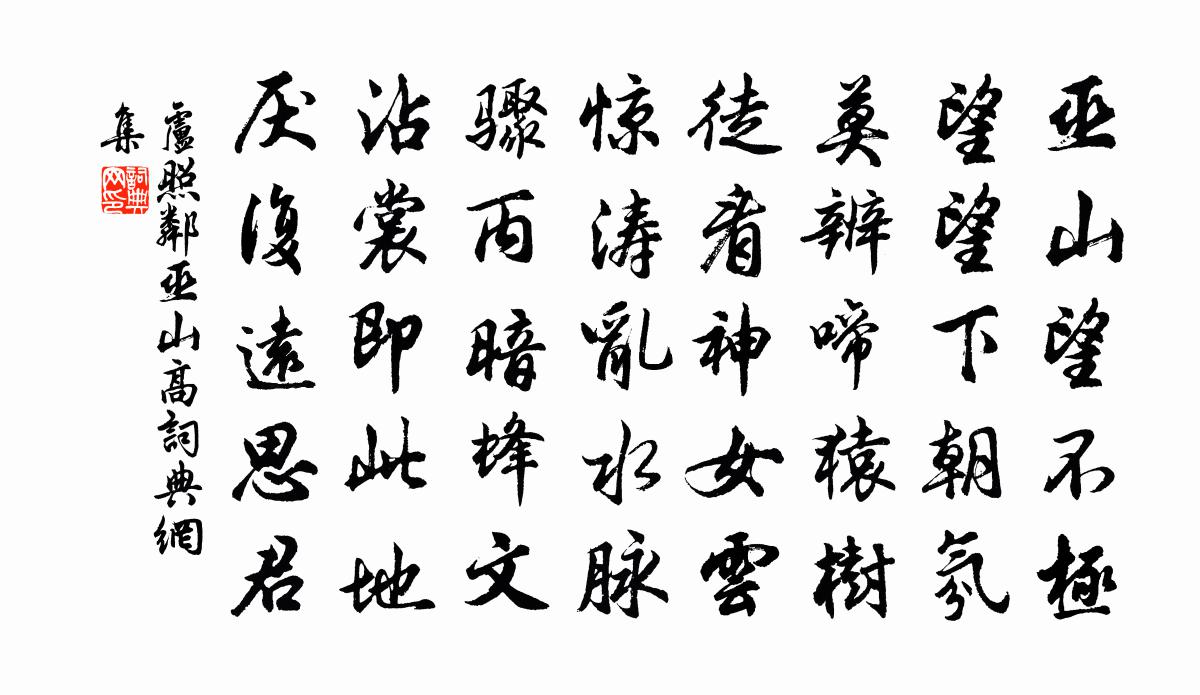 巫山望不極
望望下朝氛
莫辨啼猿樹
徒看神女雲
惊涛亂水脉
驟丙暗蜂文
沾裳即此地
厌復遠思君
盧照鄰巫山高詞典網
集
詞典
网印